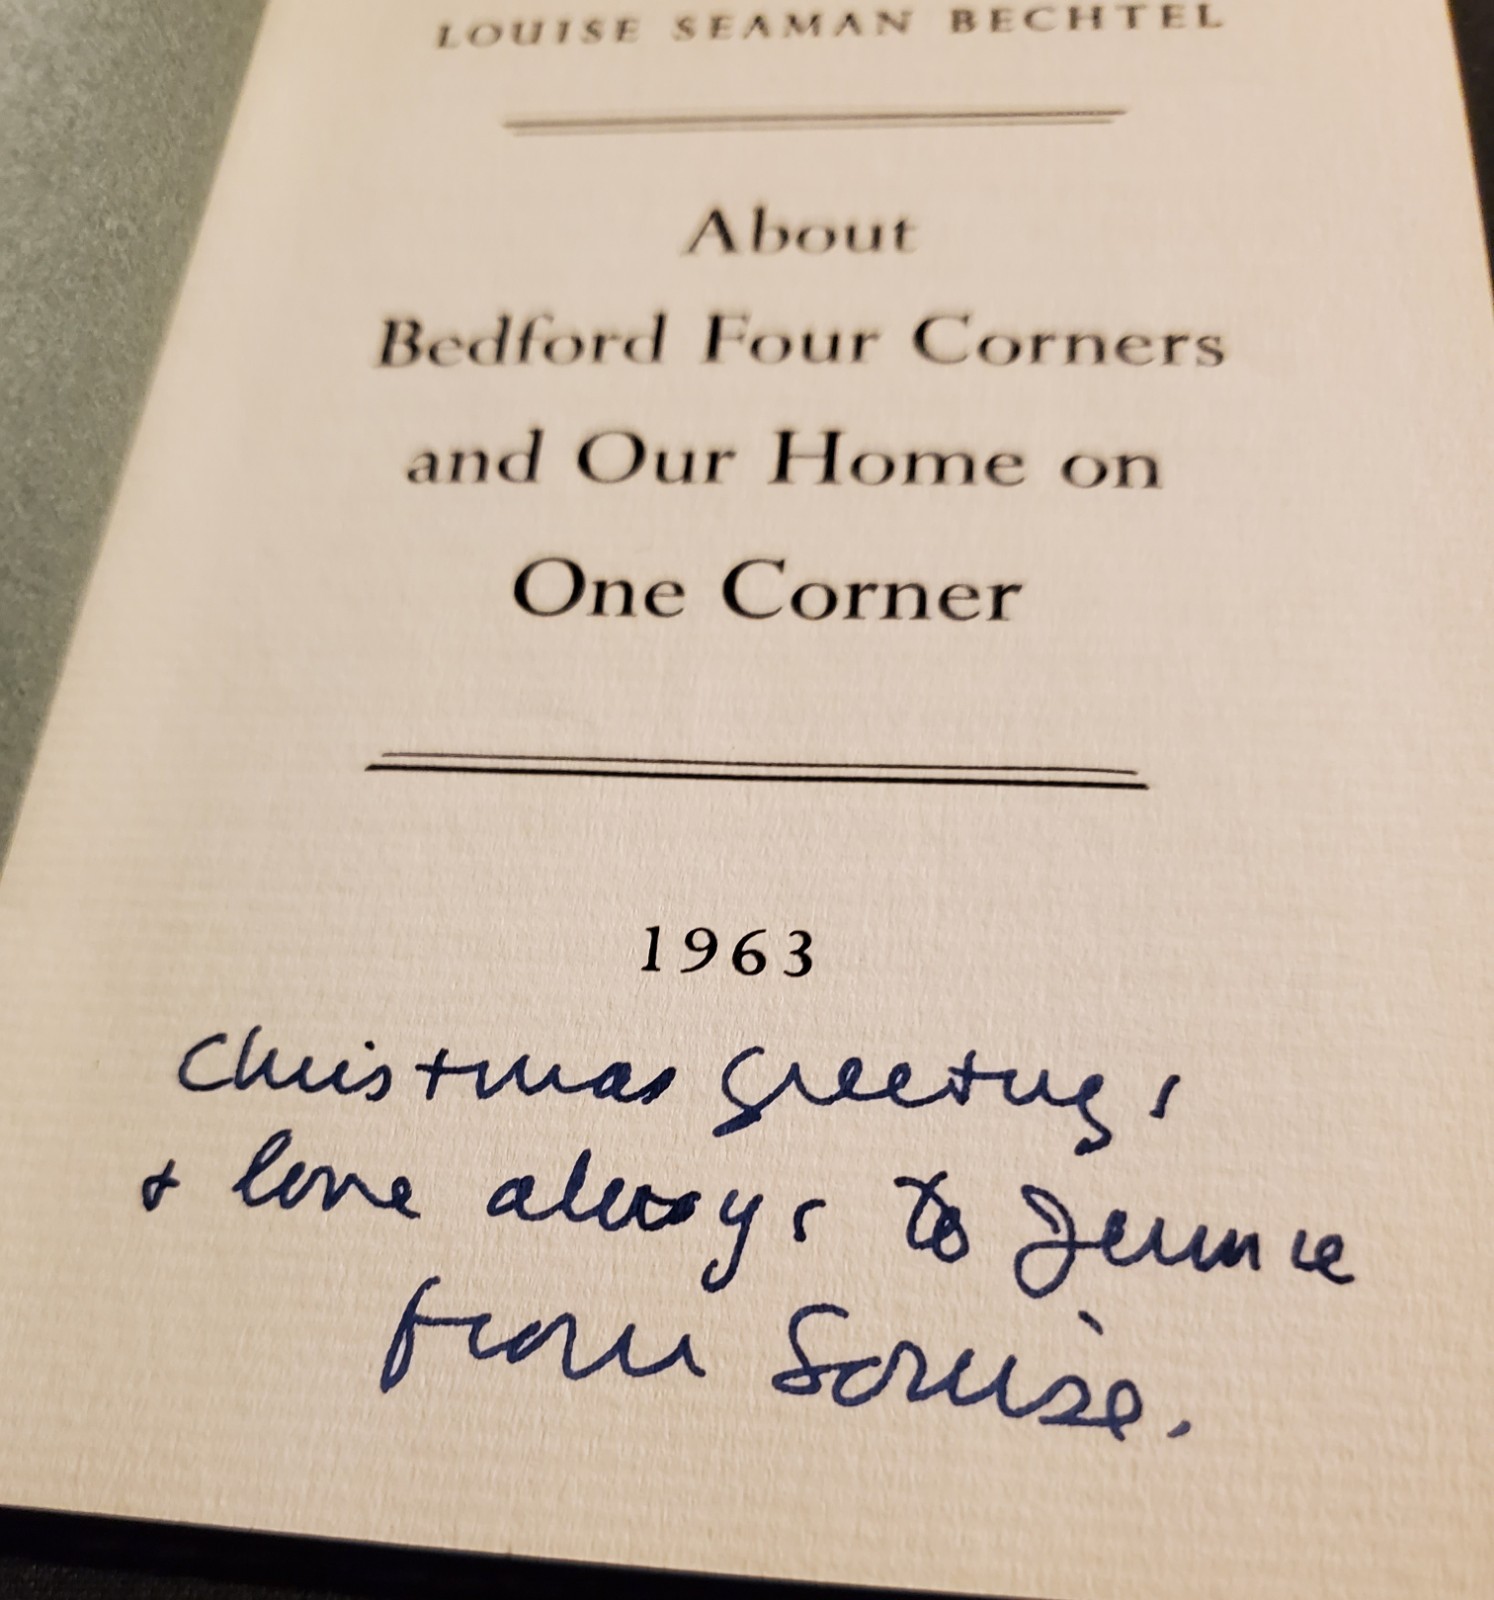 LOUISE SEAMAN BECHTEL
About
Bedford Four Corners
and Our Home on
One Corner
1963
Christmas greetings
& love always to Jennie
from Louise.